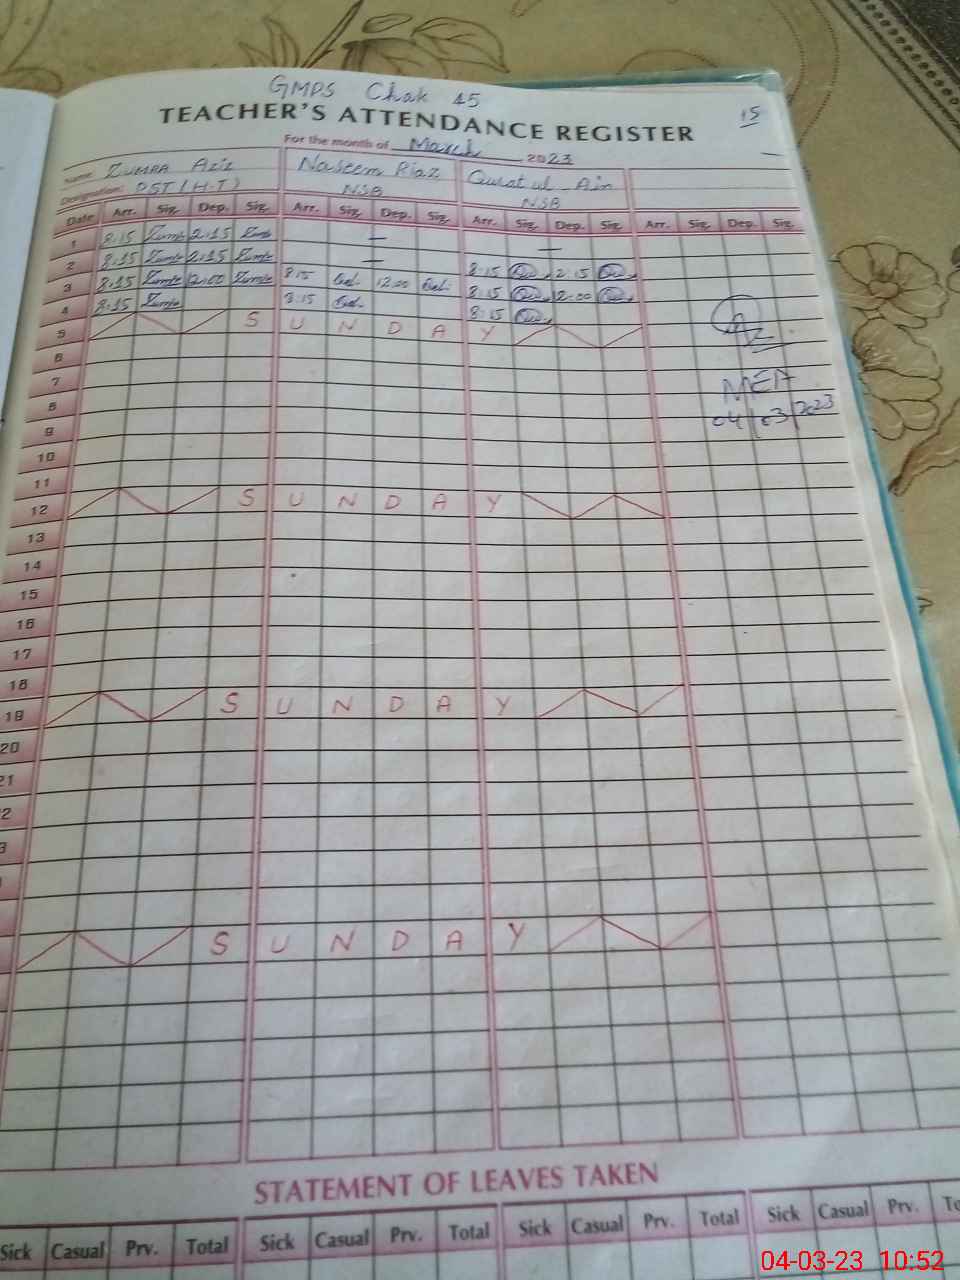 GMPS Chak 45
15
TEACHER'S ATTENDANCE REGISTER
For the month of March 2023
Name: Zumra Aziz Naseem Riaz Qurat ul Ain
Designation: PST (H-T) NSB NSB
Date Arr. Sig. Dep. Sig. Arr. Sig. Dep. Sig. Arr. Sig. Dep. Sig. Arr. Sig. Dep. Sig.
1 8:15 Zumra 2:15 Zumra — —
2 8:15 Zumra 2:15 Zumra — 8:15 2:15
3 8:15 Zumra 12:00 Zumra 8:15 12:00 8:15 12:00
4 8:15 Zumra 8:15 8:15
5 S U N D A Y
6
7
8
9
10
11
12 S U N D A Y
13
14
15
16
17
18
19 S U N D A Y
20
21
2
3
S U N D A Y
MEA
04/03/2023
STATEMENT OF LEAVES TAKEN
Sick Casual Prv. Total Sick Casual Prv. Total Sick Casual Prv. Total Sick Casual Prv. To
04-03-23 10:52